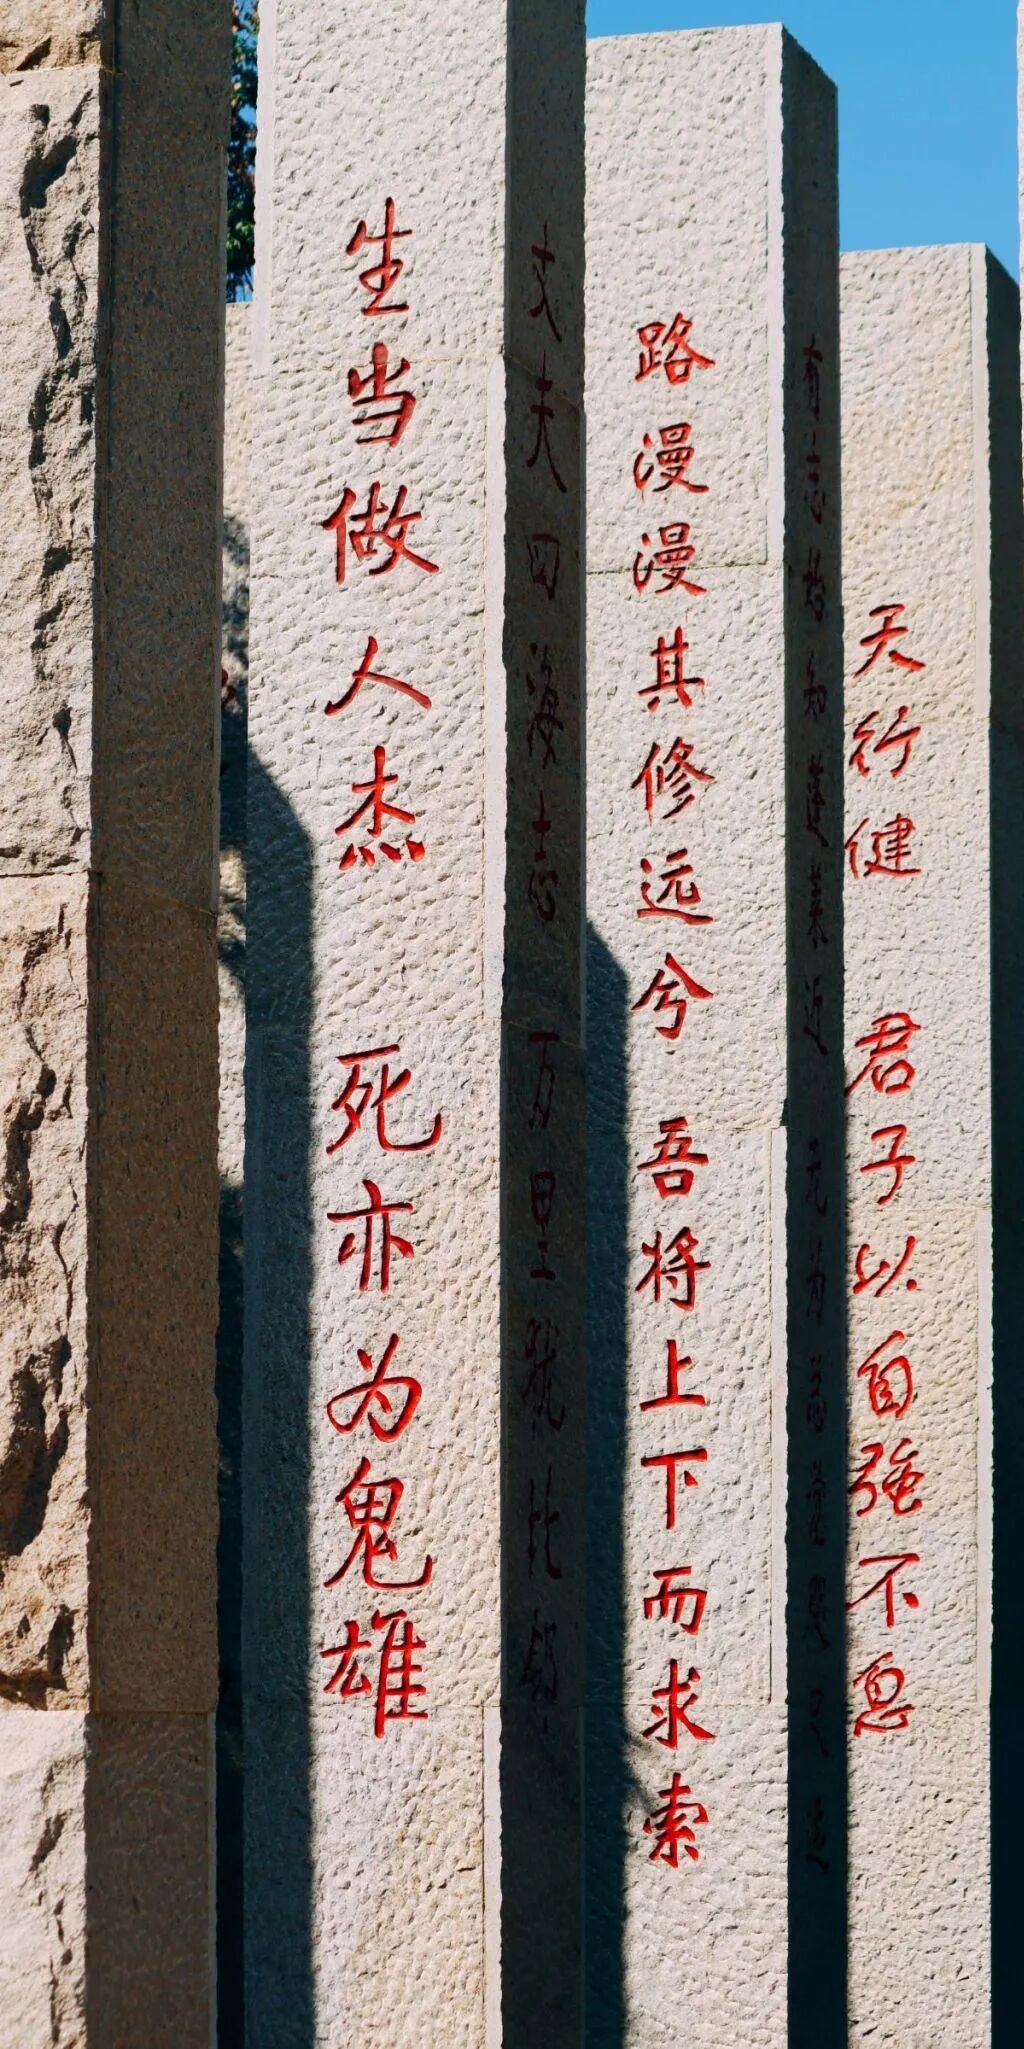 生当做人杰 死亦为鬼雄
丈夫四海志 万里犹比邻
路漫漫其修远兮 吾将上下而求索
有志始知蓬莱近 无为总觉咫尺远
天行健 君子以自强不息